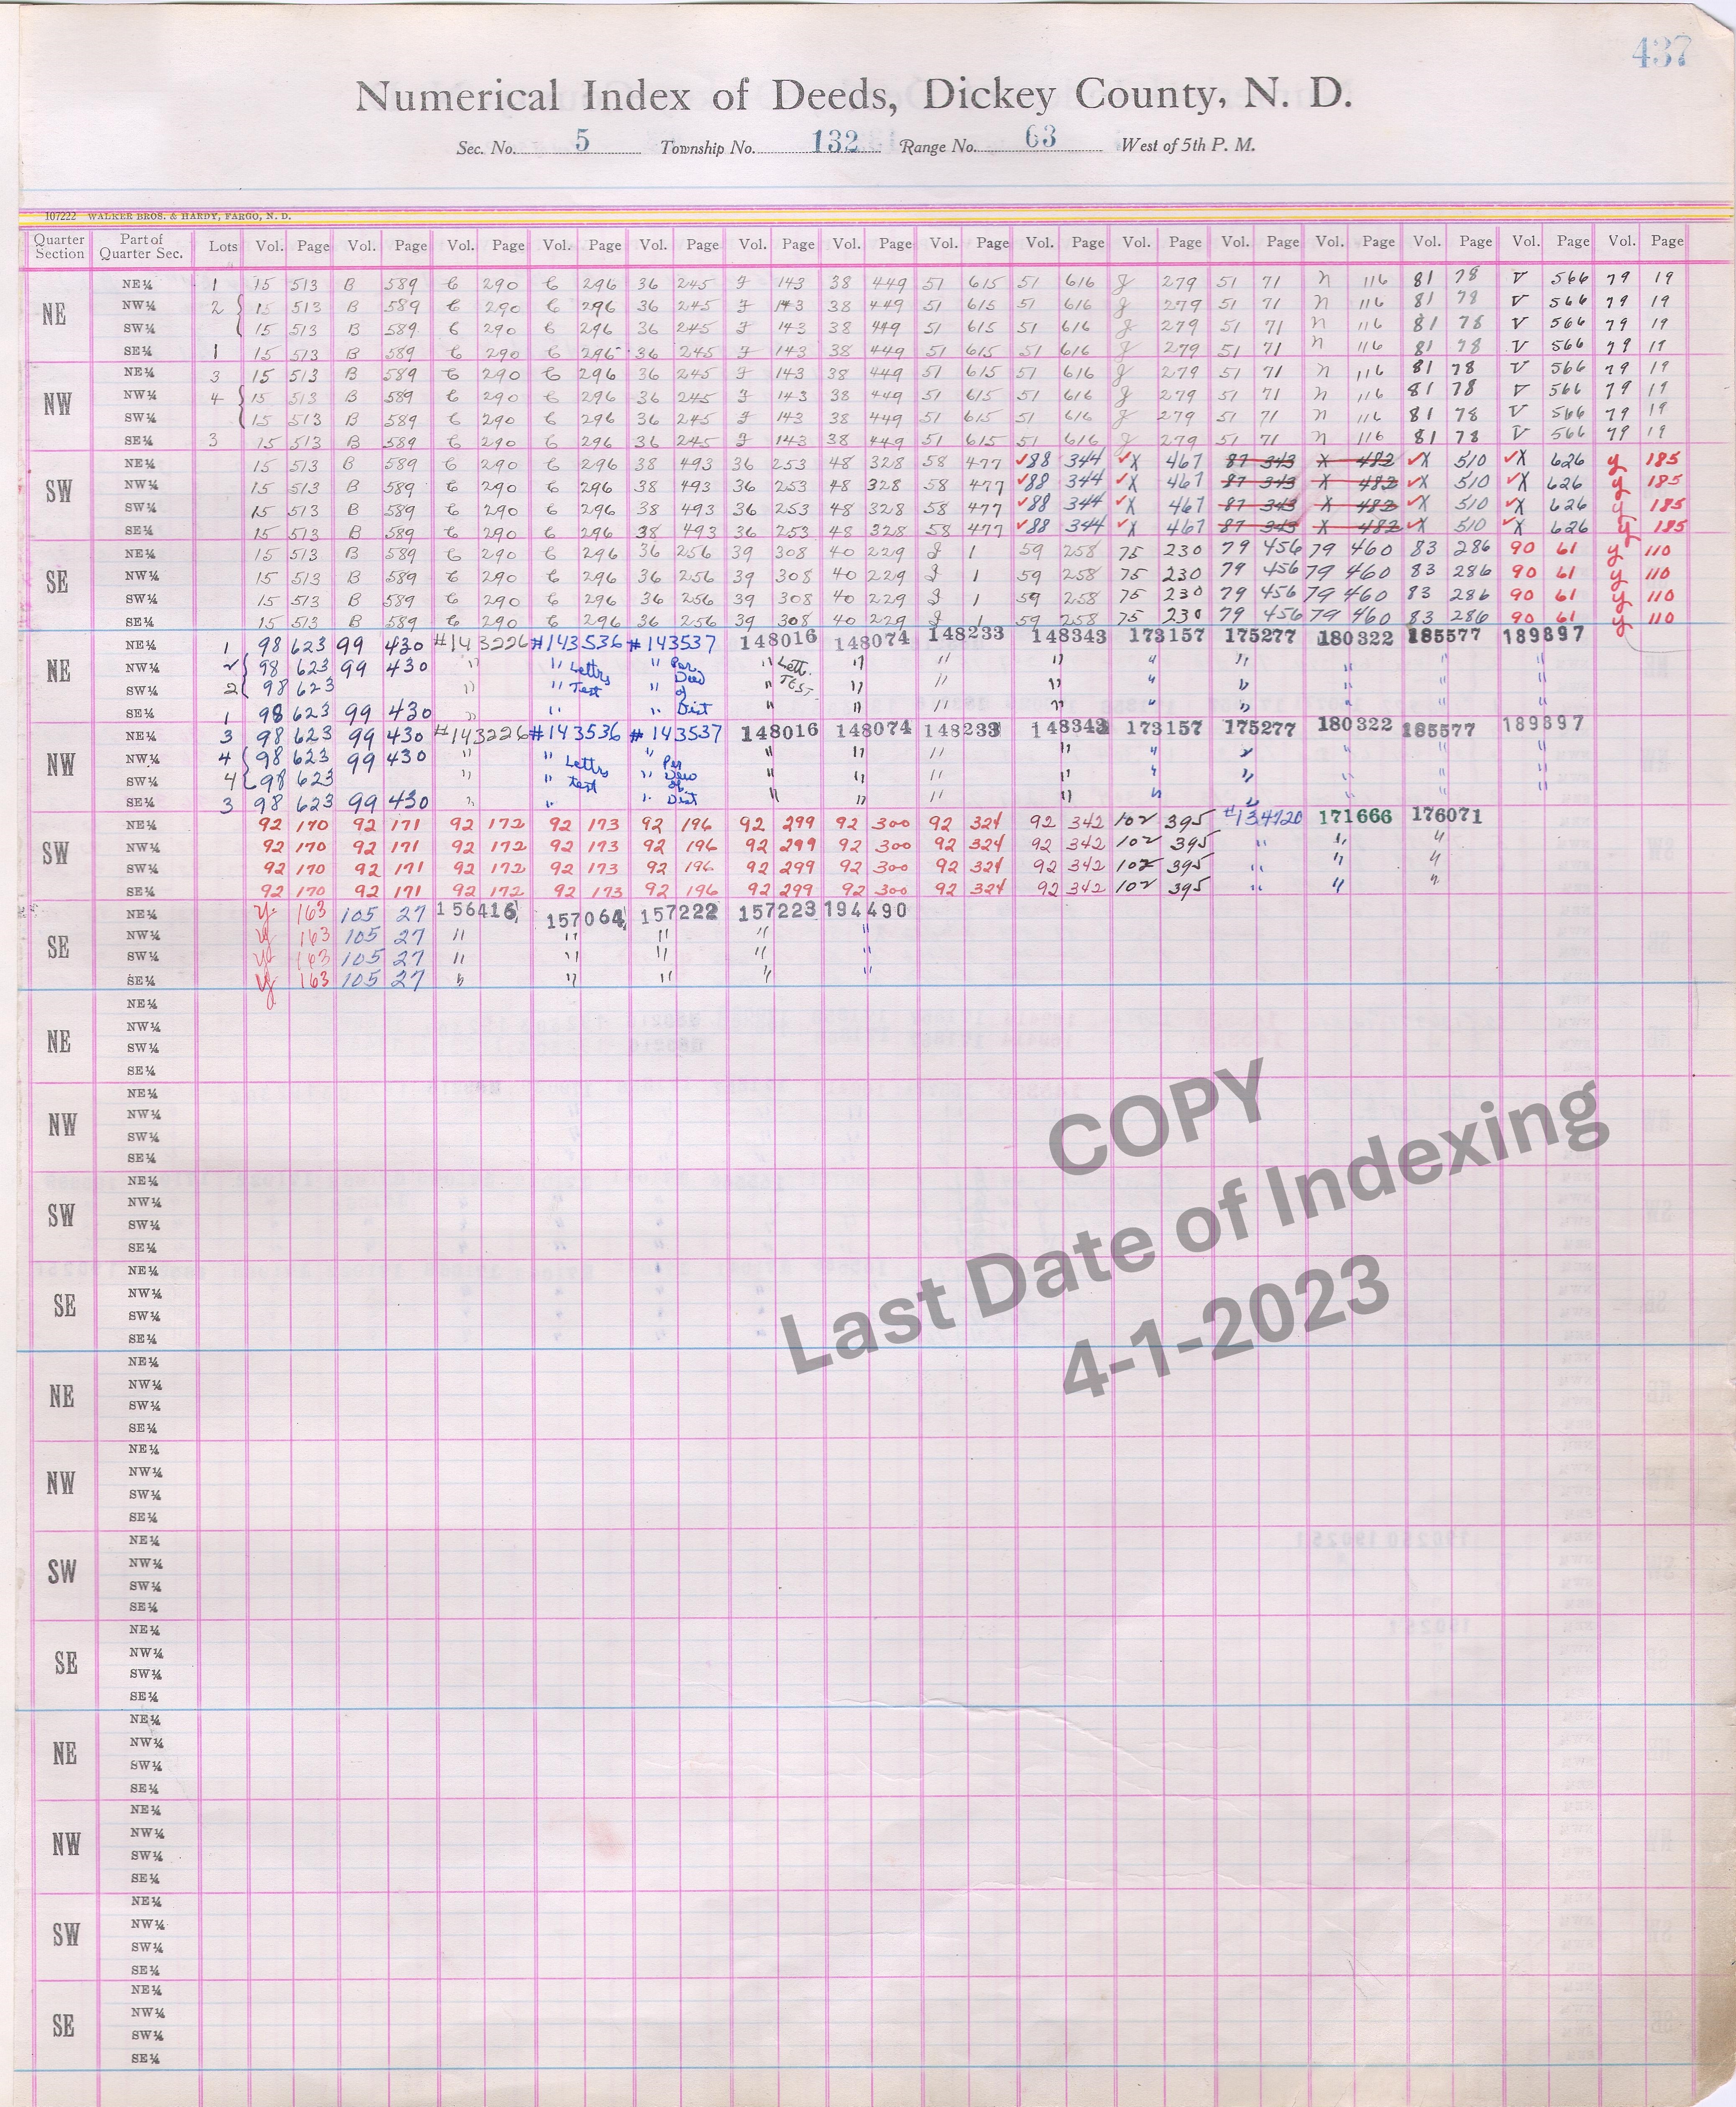 437
Numerical Index of Deeds, Dickey County, N. D.
Sec. No. 5 Township No. 132 Range No. 63 West of 5th P. M.
107222 WALKER BROS. & HARDY, FARGO, N. D.
Quarter Section Part of Quarter Sec. Lots Vol. Page Vol. Page Vol. Page Vol. Page Vol. Page Vol. Page Vol. Page Vol. Page Vol. Page Vol. Page Vol. Page Vol. Page Vol. Page Vol. Page Vol. Page
NE
NE¼ 1 15 513 B 589 C 290 C 296 36 245 F 143 38 449 51 615 51 616 g 279 51 71 n 116 81 78 V 566 79 19
NW¼ 2 15 513 B 589 C 290 C 296 36 245 F 143 38 449 51 615 51 616 g 279 51 71 n 116 81 78 V 566 79 19
SW¼ 15 513 B 589 C 290 C 296 36 245 F 143 38 449 51 615 51 616 g 279 51 71 n 116 81 78 V 566 79 19
SE¼ 1 15 513 B 589 C 290 C 296 36 245 F 143 38 449 51 615 51 616 g 279 51 71 n 116 81 78 V 566 79 19
NW
NE¼ 3 15 513 B 589 C 290 C 296 36 245 F 143 38 449 51 615 51 616 g 279 51 71 n 116 81 78 V 566 79 19
NW¼ 4 15 513 B 589 C 290 C 296 36 245 F 143 38 449 51 615 51 616 g 279 51 71 n 116 81 78 V 566 79 19
SW¼ 15 513 B 589 C 290 C 296 36 245 F 143 38 449 51 615 51 616 g 279 51 71 n 116 81 78 V 566 79 19
SE¼ 3 15 513 B 589 C 290 C 296 36 245 F 143 38 449 51 615 51 616 g 279 51 71 n 116 81 78 V 566 79 19
SW
NE¼ 15 513 B 589 C 290 C 296 38 493 36 253 48 328 58 477 ✓88 344 ✓X 467 87 343 X 482 ✓X 510 ✓X 626 y 185
NW¼ 15 513 B 589 C 290 C 296 38 493 36 253 48 328 58 477 ✓88 344 ✓X 467 87 343 X 482 ✓X 510 ✓X 626 y 185
SW¼ 15 513 B 589 C 290 C 296 38 493 36 253 48 328 58 477 ✓88 344 ✓X 467 87 343 X 482 ✓X 510 ✓X 626 y 185
SE¼ 15 513 B 589 C 290 C 296 38 493 36 253 48 328 58 477 ✓88 344 ✓X 467 87 343 X 482 ✓X 510 ✓X 626 y 185
SE
NE¼ 15 513 B 589 C 290 C 296 36 256 39 308 40 229 J 1 59 258 75 230 79 456 79 460 83 286 90 61 y 110
NW¼ 15 513 B 589 C 290 C 296 36 256 39 308 40 229 J 1 59 258 75 230 79 456 79 460 83 286 90 61 y 110
SW¼ 15 513 B 589 C 290 C 296 36 256 39 308 40 229 J 1 59 258 75 230 79 456 79 460 83 286 90 61 y 110
SE¼ 15 513 B 589 C 290 C 296 36 256 39 308 40 229 J 1 59 258 75 230 79 456 79 460 83 286 90 61 y 110
NE
NE¼ 1 98 623 99 430 #143226 #143536 #143537 148016 148074 148233 148343 173157 175277 180322 185577 189897
NW¼ 2 98 623 99 430 " " Lettrs " Per Deed " Lett. " " " " " " " "
SW¼ 2 98 623 " " Test " of " TEST. " " " " " " " "
SE¼ 1 98 623 99 430 " " " Dist " " " " " " " " "
NW
NE¼ 3 98 623 99 430 #143226 #143536 #143537 148016 148074 148233 148343 173157 175277 180322 185577 189897
NW¼ 4 98 623 99 430 " " Lettrs " Per " " " " " " " " "
SW¼ 4 98 623 " " test " Deed of " " " " " " " " "
SE¼ 3 98 623 99 430 " " " Dist " " " " " " " " "
SW
NE¼ 92 170 92 171 92 172 92 173 92 196 92 299 92 300 92 324 92 342 102 395 #134720 171666 176071
NW¼ 92 170 92 171 92 172 92 173 92 196 92 299 92 300 92 324 92 342 102 395 " " "
SW¼ 92 170 92 171 92 172 92 173 92 196 92 299 92 300 92 324 92 342 102 395 " " "
SE¼ 92 170 92 171 92 172 92 173 92 196 92 299 92 300 92 324 92 342 102 395 " " "
SE
NE¼ y 163 105 27 156416 157064 157222 157223 194490
NW¼ y 163 105 27 " " " " "
SW¼ y 163 105 27 " " " " "
SE¼ y 163 105 27 " " " " "
NE
NE¼
NW¼
SW¼
SE¼
NW
NE¼
NW¼
SW¼
SE¼
SW
NE¼
NW¼
SW¼
SE¼
SE
NE¼
NW¼
SW¼
SE¼
NE
NE¼
NW¼
SW¼
SE¼
NW
NE¼
NW¼
SW¼
SE¼
SW
NE¼
NW¼
SW¼
SE¼
SE
NE¼
NW¼
SW¼
SE¼
NE
NE¼
NW¼
SW¼
SE¼
NW
NE¼
NW¼
SW¼
SE¼
SW
NE¼
NW¼
SW¼
SE¼
SE
NE¼
NW¼
SW¼
SE¼
COPY
Last Date of Indexing
4-1-2023